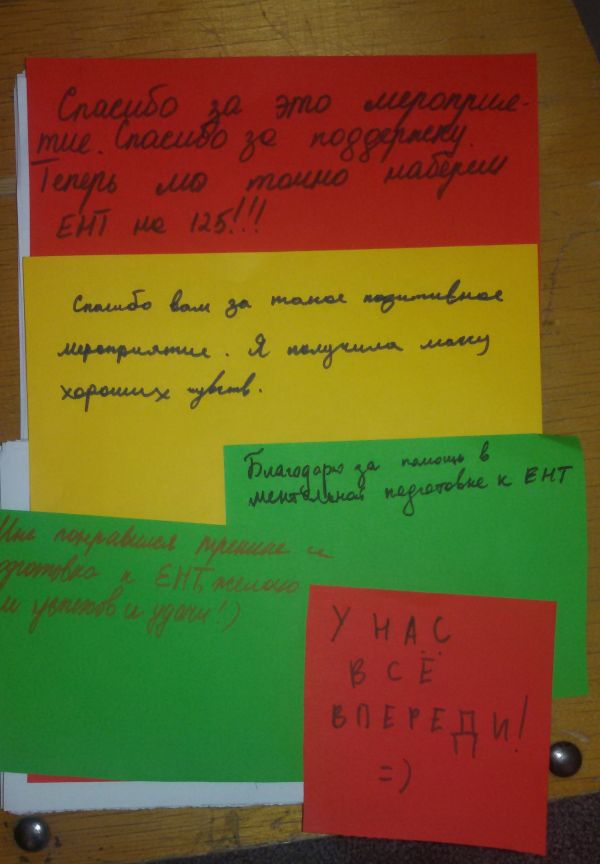 Спасибо за это мероприя-
тие. Спасибо за поддержку.
Теперь мы точно наберем
ЕНТ на 125!!!
Спасибо вам за такое позитивное
мероприятие. Я получила массу
хороших чувств.
Благодарю за помощь в
ментальной подготовке к ЕНТ
Мне понравился тренинг и
одготовка к ЕНТ, желаю
м успехов и удачи! :)
У НАС
ВСЁ
ВПЕРЕДИ!
=)